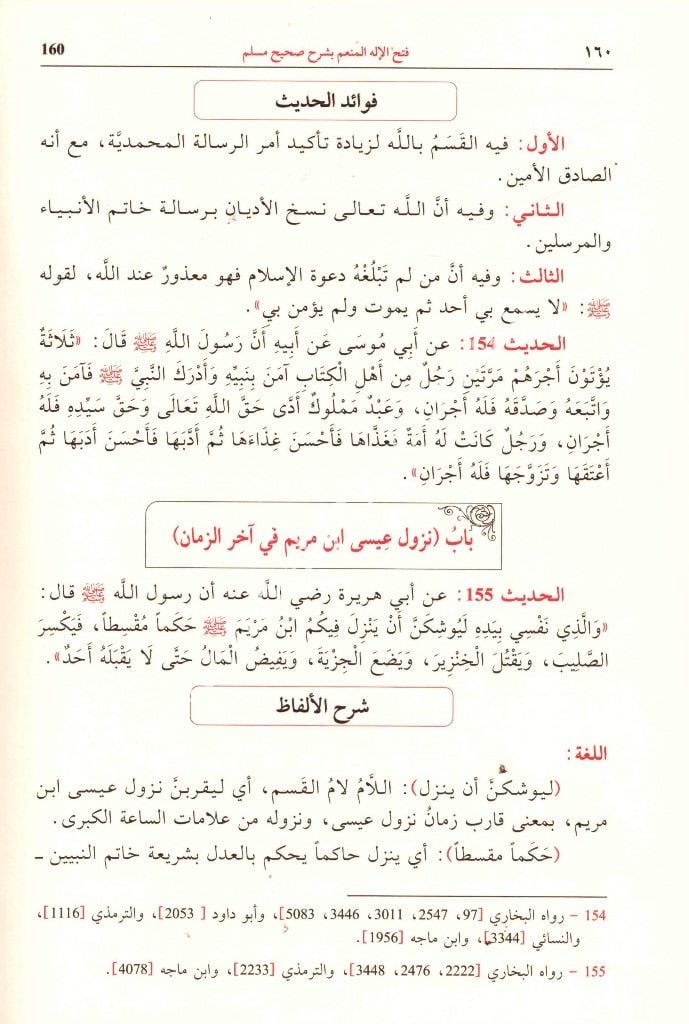 ١٦٠ فتح الإله المنعم بشرح صحيح مسلم 160
فوائد الحديث
الأول: فيه القَسَمُ باللَّه لزيادة تأكيد أمر الرسالة المحمديَّة، مع أنه
الصادق الأمين.
الثاني: وفيه أنَّ اللَّه تعالى نسخ الأديان برسالة خاتم الأنبياء
والمرسلين.
الثالث: وفيه أنَّ من لم تَبْلُغْهُ دعوة الإسلام فهو معذورٌ عند اللَّه، لقوله
ﷺ: «لا يسمع بي أحد ثم يموت ولم يؤمن بي».
الحديث 154: عن أَبِي مُوسَى عَن أَبِيهِ أَنَّ رَسُولَ اللَّهِ ﷺ قَالَ: «ثَلَاثَةٌ
يُؤْتَوْنَ أَجْرَهُمْ مَرَّتَيْنِ رَجُلٌ مِن أَهْلِ الْكِتَابِ آمَنَ بِنَبِيِّهِ وَأَدْرَكَ النَّبِيَّ ﷺ فَآمَنَ بِهِ
وَاتَّبَعَهُ وَصَدَّقَهُ فَلَهُ أَجْرَانِ، وَعَبْدٌ مَمْلُوكٌ أَدَّى حَقَّ اللَّهِ تَعَالَى وَحَقَّ سَيِّدِهِ فَلَهُ
أَجْرَانِ، وَرَجُلٌ كَانَتْ لَهُ أَمَةٌ فَغَذَّاهَا فَأَحْسَنَ غِذَاءَهَا ثُمَّ أَدَّبَهَا فَأَحْسَنَ أَدَبَهَا ثُمَّ
أَعْتَقَهَا وَتَزَوَّجَهَا فَلَهُ أَجْرَانِ».
بَابُ (نزول عِيسى ابن مريم في آخر الزمان)
الحديث 155: عن أبي هريرة رضي اللَّه عنه أن رسول اللَّه ﷺ قال:
«وَالَّذِي نَفْسِي بِيَدِهِ لَيُوشكَنَّ أَنْ يَنْزِلَ فِيكُمُ ابْنُ مَرْيَمَ ﷺ حَكَماً مُقْسِطاً، فَيَكْسِرَ
الصَّلِيبَ، وَيَقْتُلَ الْخِنْزِيرَ، وَيَضَعَ الْجِزْيَةَ، وَيَفِيضُ الْمَالُ حَتَّى لَا يَقْبَلَهُ أَحَدٌ».
شرح الألفاظ
اللغة:
(ليوشكنَّ أن ينزل): اللامُ لامُ القَسم، أي ليقربنَّ نزول عيسى ابن
مريم، بمعنى قارب زمانُ نزول عيسى، ونزوله من علامات الساعة الكبرى.
(حَكَماً مقسطاً): أي ينزل حاكماً يحكم بالعدل بشريعة خاتم النبيين ـ
154 - رواه البخاري [97، 2547، 3011، 3446، 5083، وأبو داود [ 2053]، والترمذي [1116]،
والنسائي [3344]، وابن ماجه [1956].
155 - رواه البخاري [2222، 2476، 3448]، والترمذي [2233]، وابن ماجه [4078].